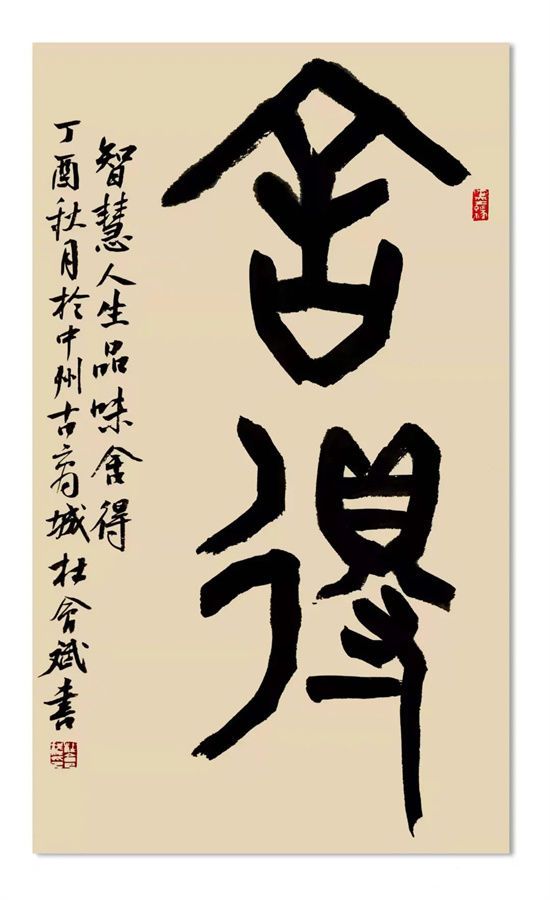 舍得
智慧人生品味舍得
丁酉秋月於中州古商城杜會斌書